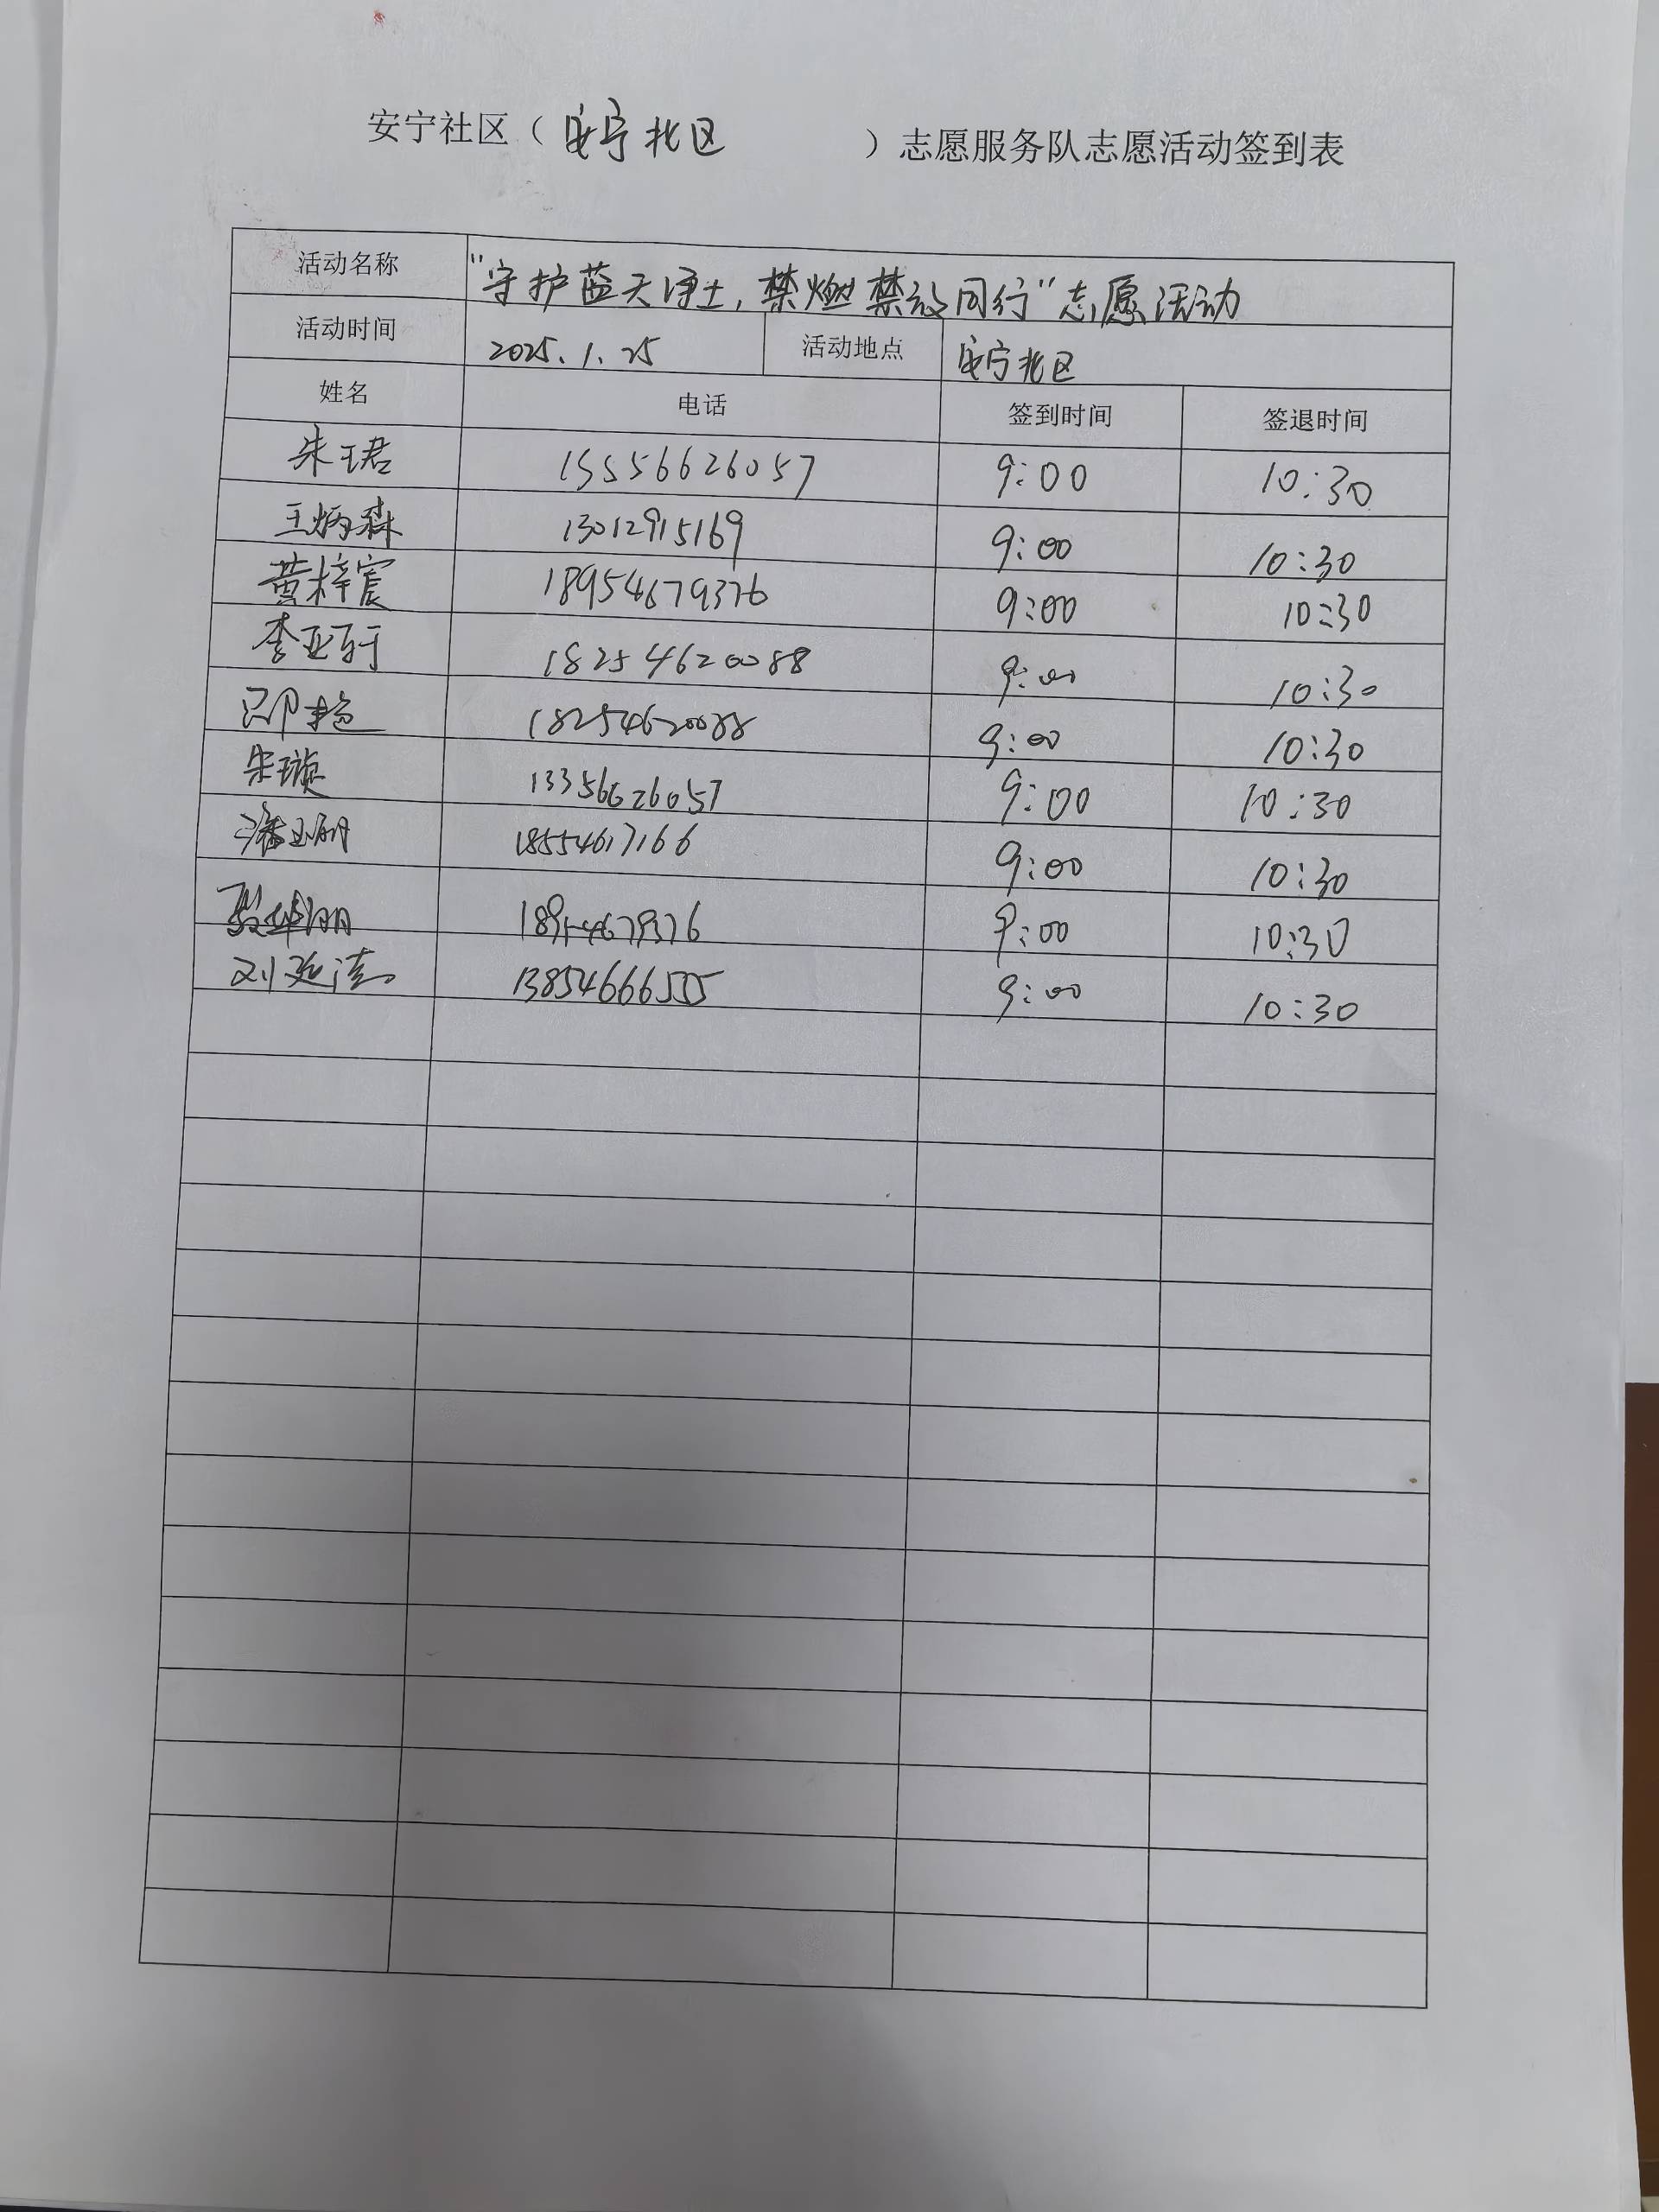 安宁社区（安宁北区）志愿服务队志愿活动签到表
活动名称 "守护蓝天净土，禁燃禁放同行"志愿活动
活动时间 2025.1.25 活动地点 安宁北区
姓名 电话 签到时间 签退时间
朱珺 15556626057 9:00 10:30
王炳森 13012915169 9:00 10:30
黄梓宸 18954679376 9:00 10:30
李亚轩 18254620088 9:00 10:30
邵艳 18254620088 9:00 10:30
朱璇 13356626057 9:00 10:30
潘玉明 18554617166 9:00 10:30
18954679376 9:00 10:30
刘延涛 13854666555 9:00 10:30